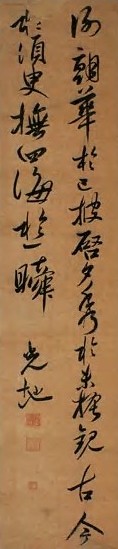 謝朝華於已披啓夕秀於未振觀古今
於須臾撫四海於一瞬 光地